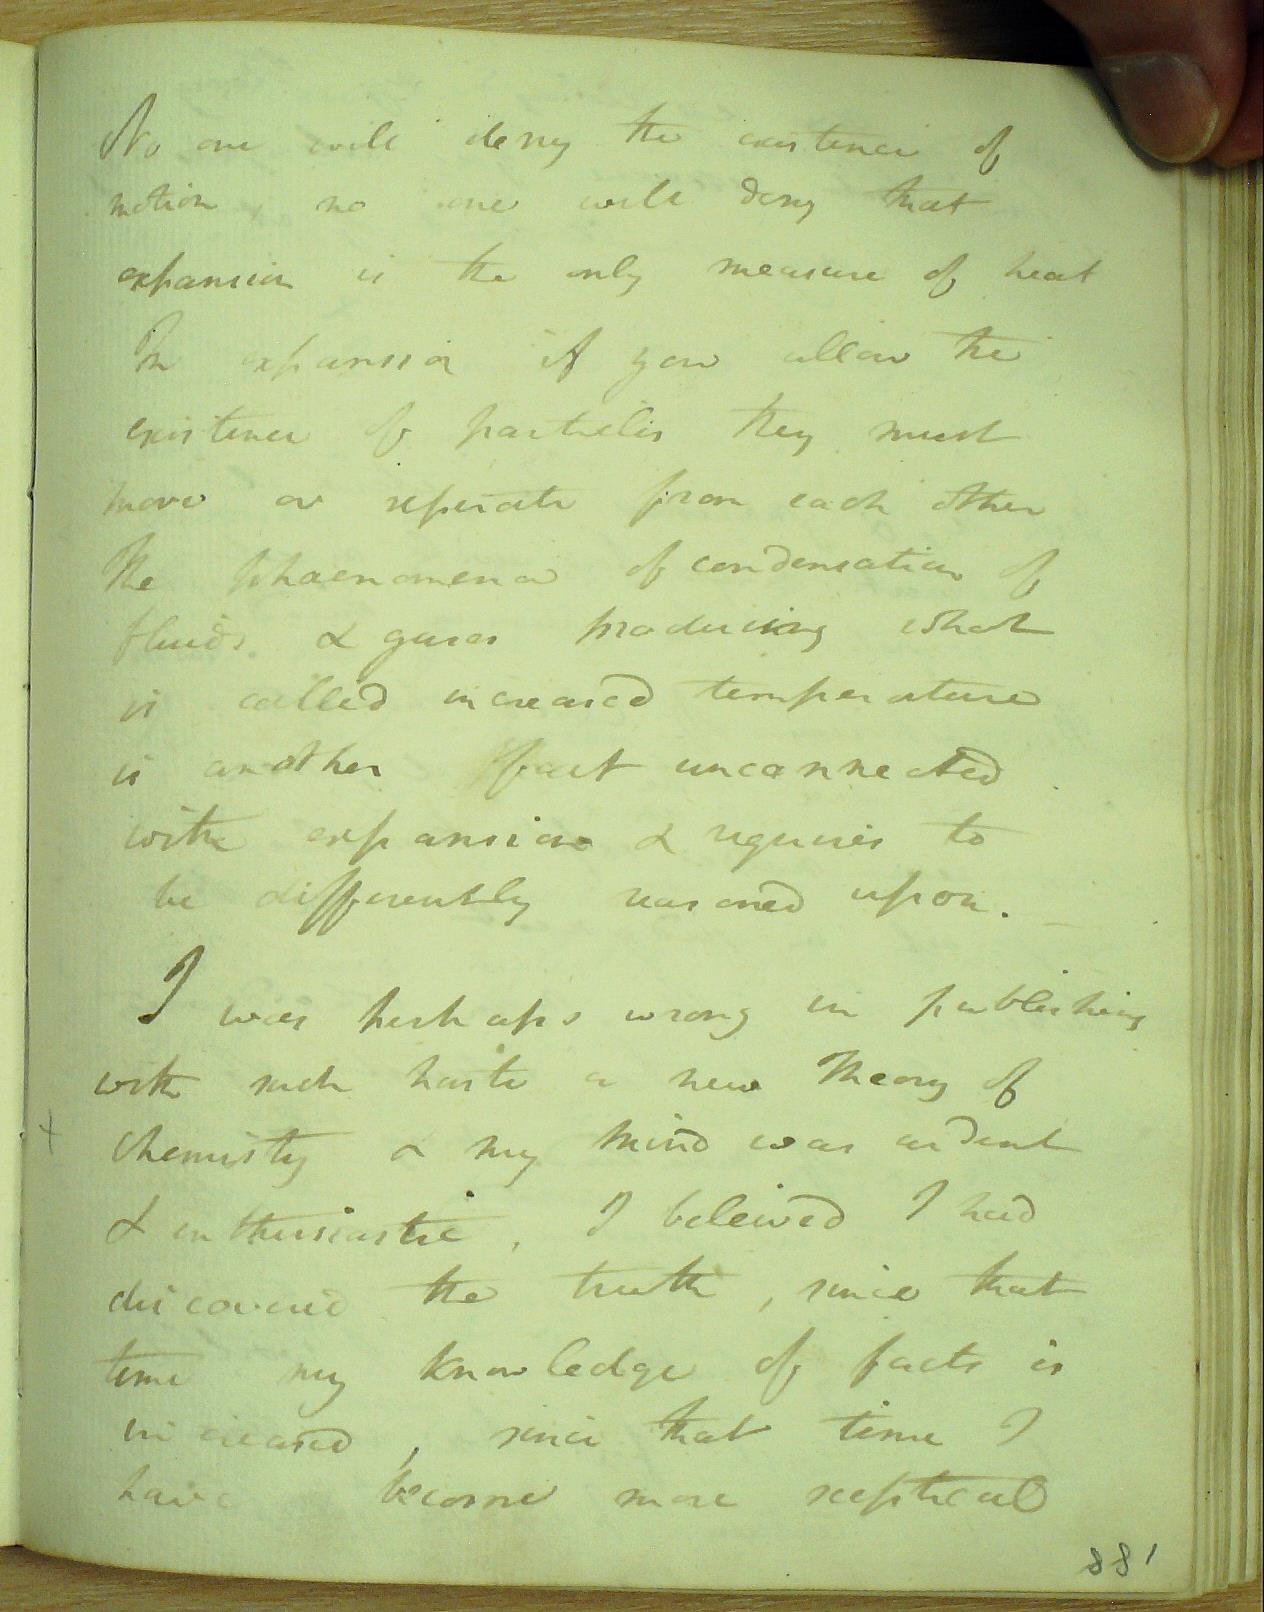 No one will deny the existence of
motion, no one will deny that
expansion is the only measure of heat
In expansion if you allow the
existence of particles they must
move or seperate from each other
The phaenomena of condensation of
fluids & gases producing what
is called increased temperature
is another fact unconnected
with expansion & requires to
be differently reasoned upon.
I was perhaps wrong in publishing
with such haste a new Theory of
+ chemistry & my mind was ardent
& enthusiastic, I beleived I had
discovered the truth, since that
time my knowledge of facts is
increased, since that time I
have become more sceptical
188